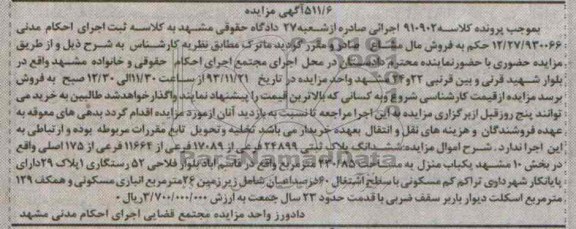 ۵۱۱/۶آگهی مزایده
بموجب پرونده کلاسه۹۰۲-۹۱ اجرائی صادره ازشعبه۲۷ دادگاه حقوقی مشهد به کلاسه ثبت اجرای احکام مدنی
۱۲/۲۷/۹۳۰۰۶۶ حکم به فروش مال مشاع صادر و مقرر گردید ماترک مطابق نظریه کارشناس به شرح ذیل و از طریق
مزایده حضوری با حضورنماینده محترم دادستان در محل اجرای مجتمع اجرای احکام حقوقی و خانواده مشهد واقع در
بلوار شهید قرنی و بین قرنی ۲۲و۲۴ مشهد واحد مزایده در تاریخ ۹۳/۱۱/۲۱ از ساعت ۱۱/۳۰الی ۱۲/۳۰ صبح به فروش
برسد مزایده ازقیمت کارشناسی شروع وبه کسانی که بالاترین قیمت را پیشنهاد نمایند واگذارخواهدشد طالبین به خرید می
توانند پنج روزقبل ازبرگزاری مزایده به این اجرا مراجعه تا نسبت به بازدید آنان ازمورد مزایده اقدام گردد بدهی های معوقه به
عهده فروشندگان و هزینه های نقل و انتقال بعهده خریدار می باشد تخلیه وتحویل تابع مقررات مربوطه بوده و ارتباطی به
این اجرا ندارد. شرح اموال مزایده:ششدانگ پلاک ثبتی ۲۴۸۹۹ فرعی از۱۷۰۸۹ فرعی از ۱۱۶۶۴ فرعی از ۱۷۵ اصلی واقع
در بخش ۱۰ مشهد یکباب منزل به مساحت ۴۳۰/۸۵ مترمربع واقع در قاسم آباد بلوار فلاحی ۵۲ رستگاری ۱پلاک ۲۹دارای
پایانکار شهرداوی تراکم کم مسکونی باسطح اشتغال ۶۰درصداعیان شامل زیرزمین ۲۶مترمربع انباری مسکونی و همکف ۱۲۹
مترمربع اسکلت دیوار باربر سقف ضربی با قدمت حدود ۲۳ سال جمعت به ارزش ۳/۷۰۰/۰۰۰/۰۰۰ریال
دادورز واحد مزایده مجتمع قضایی اجرای احکام مدنی مشهد